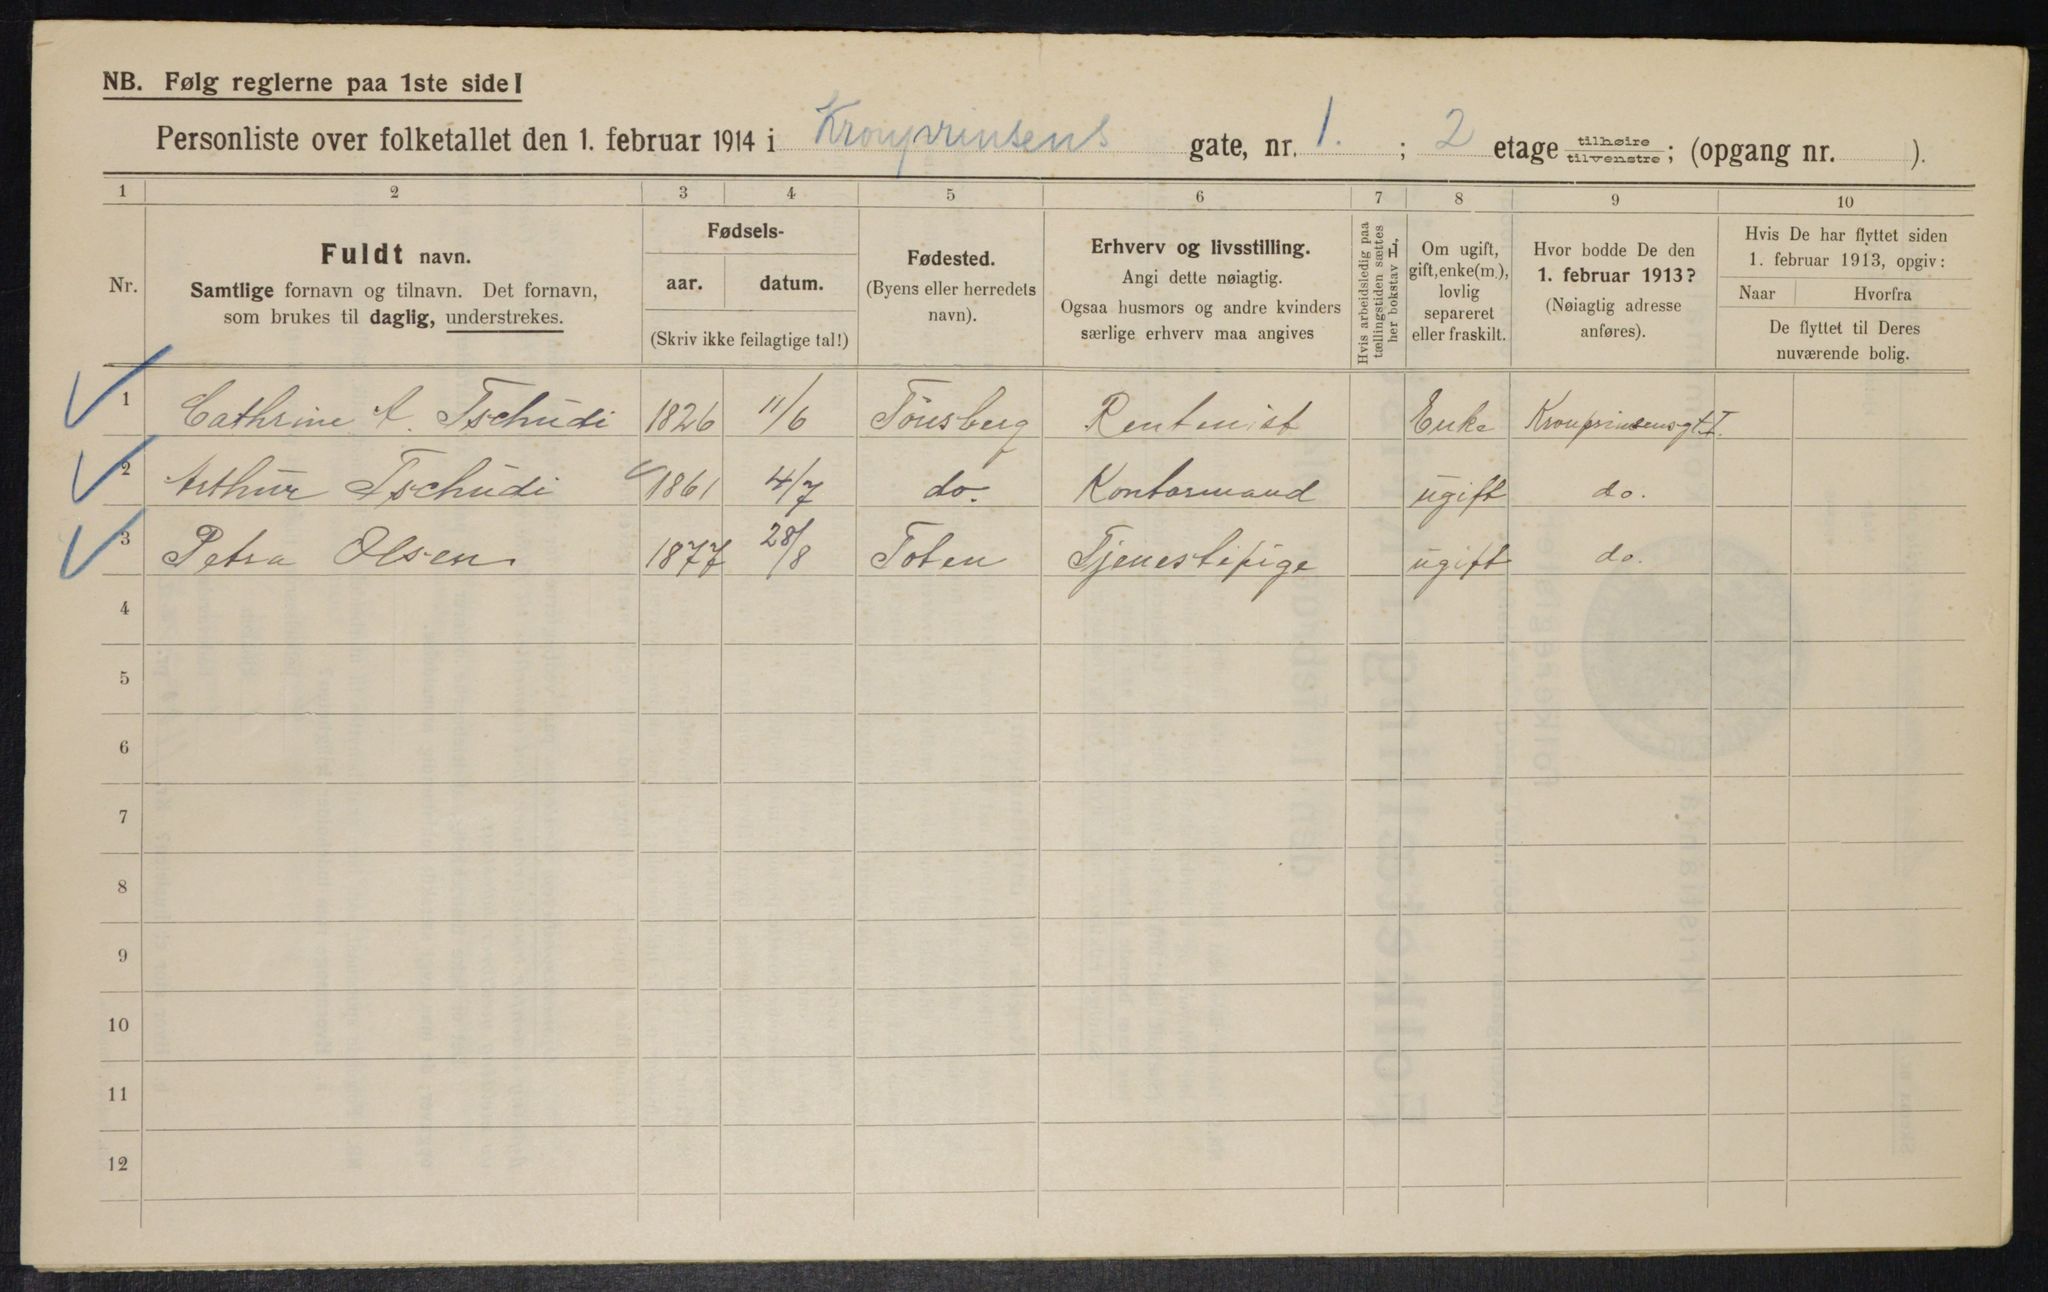 NB. Følg reglerne paa 1ste side!
Personliste over folketallet den 1. februar 1914 i Kronprinsens gate, nr. 1. ; 2 etage tilhøire/tilvenstre; (opgang nr. ).
1 2 3 4 5 6 7 8 9 10
Nr.
Fuldt navn.
Samtlige fornavn og tilnavn. Det fornavn,
som brukes til daglig, understrekes.
Fødsels-
aar. datum.
(Skriv ikke feilagtige tal!)
Fødested.
(Byens eller herredets
navn).
Erhverv og livsstilling.
Angi dette nøiagtig.
Ogsaa husmors og andre kvinders
særlige erhverv maa angives
Hvis arbeidsledig paa
tællingstiden sættes
her bokstav L.
Om ugift,
gift, enke(m.),
lovlig
separeret
eller fraskilt.
Hvor bodde De den
1. februar 1913?
(Nøiagtig adresse
anføres).
Hvis De har flyttet siden
1. februar 1913, opgiv:
Naar Hvorfra
De flyttet til Deres
nuværende bolig.
1 Cathrine A. Tschudi 1826 11/6 Tönsberg Rentenist Enke Kronprinsensgt. I.
2 Arthur Tschudi 1861 4/7 do. Kontormand ugift do.
3 Petra Olsen 1877 28/8 Toten Tjenestepige ugift do.
4
5
6
7
8
9
10
11
12